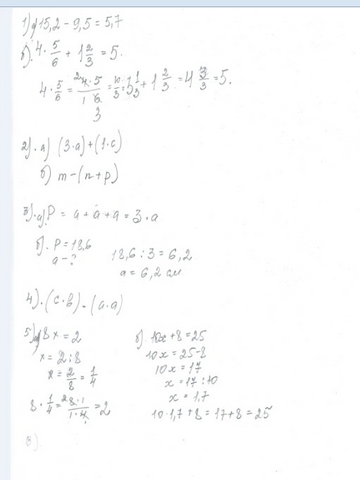 1) а) 15,2 - 9,5 = 5,7
б) 4 · 5/6 + 1 2/3 = 5.
4 · 5/6 = 4·5/1·6 = 10/3 = 3 1/3 + 1 2/3 = 4 3/3 = 5.
2) а) (3·a) + (1·c)
б) m - (n + p)
3) а) P = a + a + a = 3 · a
б) P = 18,6
a - ? 18,6 : 3 = 6,2
a = 6,2 см
4) (c · b) - (a · a)
5) а) 8x = 2
x = 2 : 8
x = 2/8 = 1/4
8 · 1/4 = 8·1/1·4 = 2
б) 10x + 8 = 25
10x = 25 - 8
10x = 17
x = 17 : 10
x = 1,7
10 · 1,7 + 8 = 17 + 8 = 25